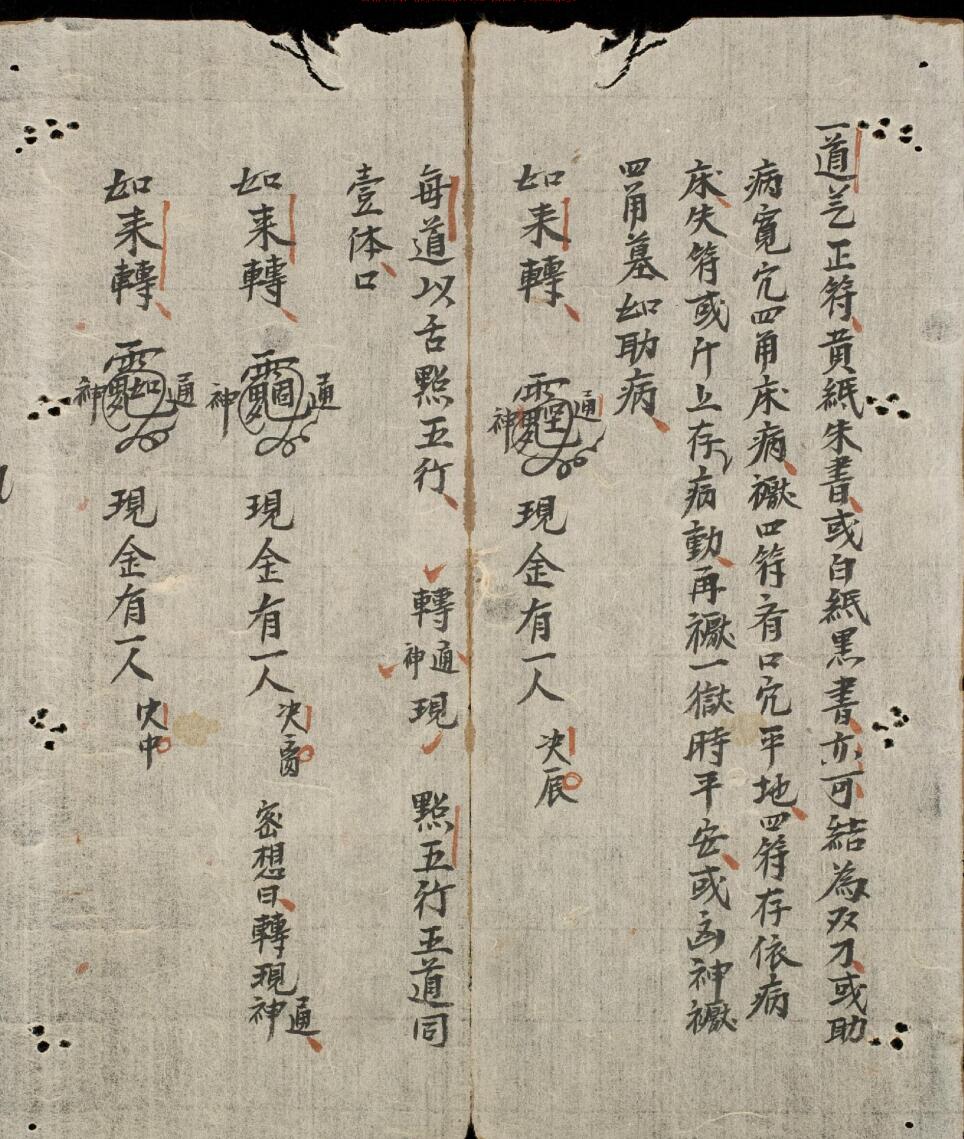 一道䒳正符黄紙朱書或白紙黒書亦可結為双刀或助
病寛穴四角床病禳四符有口穴平地四符存依病
床失符或斤上存病動再禳一獄時平安或函神禳
四角墓如助病
如来轉 神通 現金有一人 决辰
每道以舌點五行 轉神通現 點五行五道同
壹体口
如来轉 神通 現金有一人 决 密想曰轉現神通
如来轉 神通 現金有一人 决中